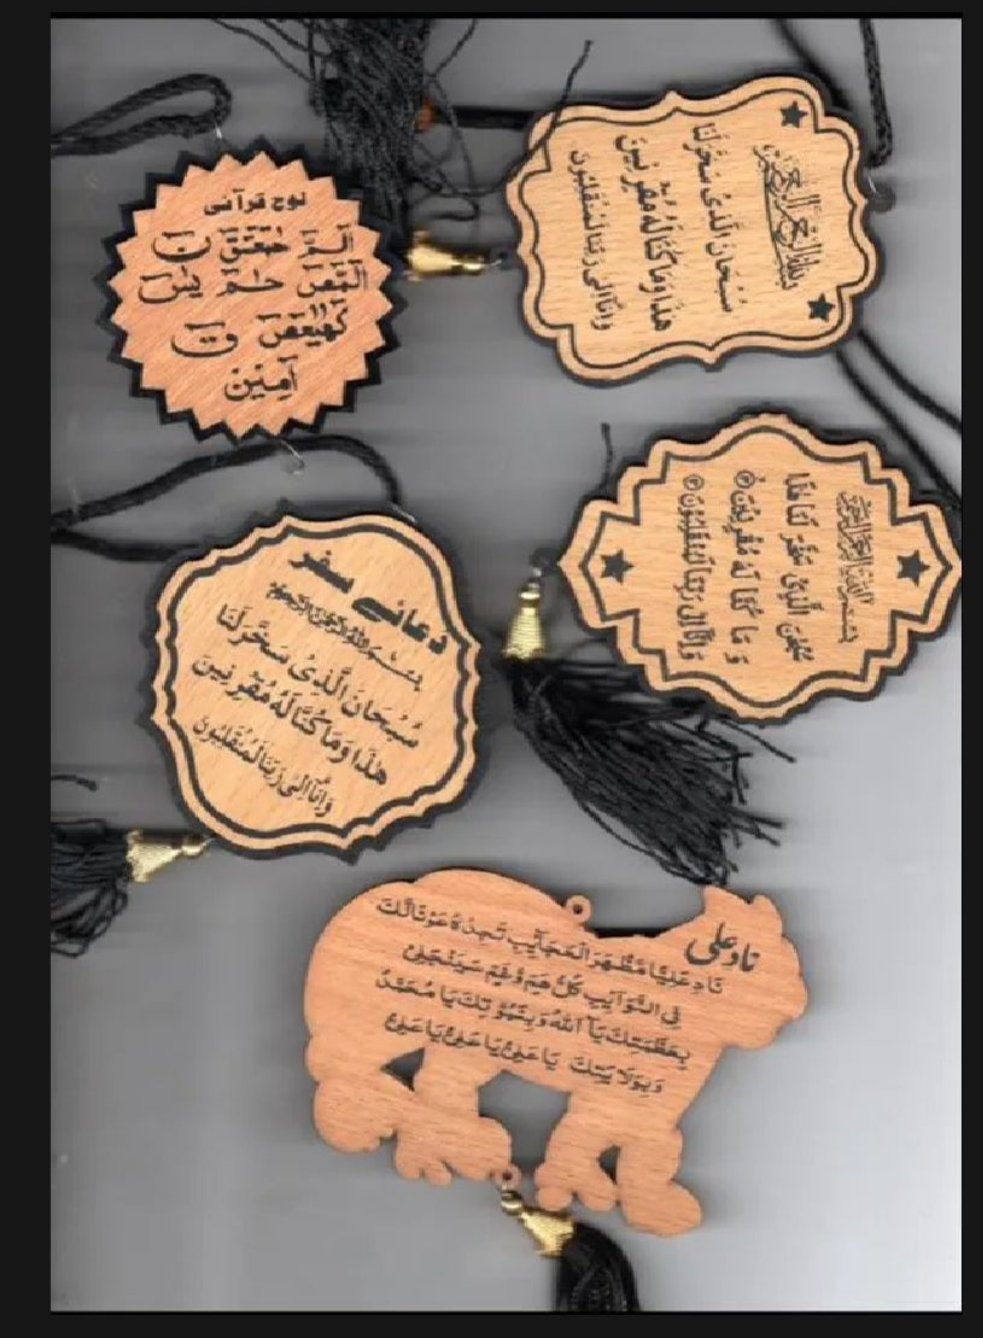 لوح قرآنی
الٓمٓ حٓمٓعٓسٓقٓ نٓ
الٓمٓصٓ حٰمٓ یٰسٓ
کٓھٰیٰعٓصٓ قٓ
آمِیْن
بِسْمِ اللهِ الرَّحْمٰنِ الرَّحِيْمِ
سُبْحَانَ الَّذِیْ سَخَّرَلَنَا
هٰذَا وَمَا كُنَّا لَهٗ مُقْرِنِیْنَ
وَاِنَّآ اِلٰی رَبِّنَا لَمُنْقَلِبُوْنَ
دعائے سفر
بِسْمِ اللهِ الرَّحْمٰنِ الرَّحِيْمِ
سُبْحَانَ الَّذِیْ سَخَّرَلَنَا
هٰذَا وَمَا كُنَّا لَهٗ مُقْرِنِیْنَ
وَاِنَّآ اِلٰی رَبِّنَا لَمُنْقَلِبُوْنَ
بِسْمِ اللهِ الرَّحْمٰنِ الرَّحِيْمِ
سُبْحٰنَ الَّذِیْ سَخَّرَ لَنَا هٰذَا
وَ مَا كُنَّا لَهٗ مُقْرِنِیْنَ
وَاِنَّآ اِلٰی رَبِّنَا لَمُنْقَلِبُوْنَ
نادِ علی
نَادِ عَلِیًّا مَّظْهَرَ الْعَجَآئِبِ تَجِدْهُ عَوْنًا لَّكَ
فِی النَّوَآئِبِ كُلُّ هَمٍّ وَّغَمٍّ سَیَنْجَلِیْ
بِعَظَمَتِكَ یَآ اَللهُ وَبِنُبُوَّتِكَ یَا مُحَمَّدُ
وَبِوَلَایَتِكَ یَا عَلِیُّ یَا عَلِیُّ یَا عَلِیُّ